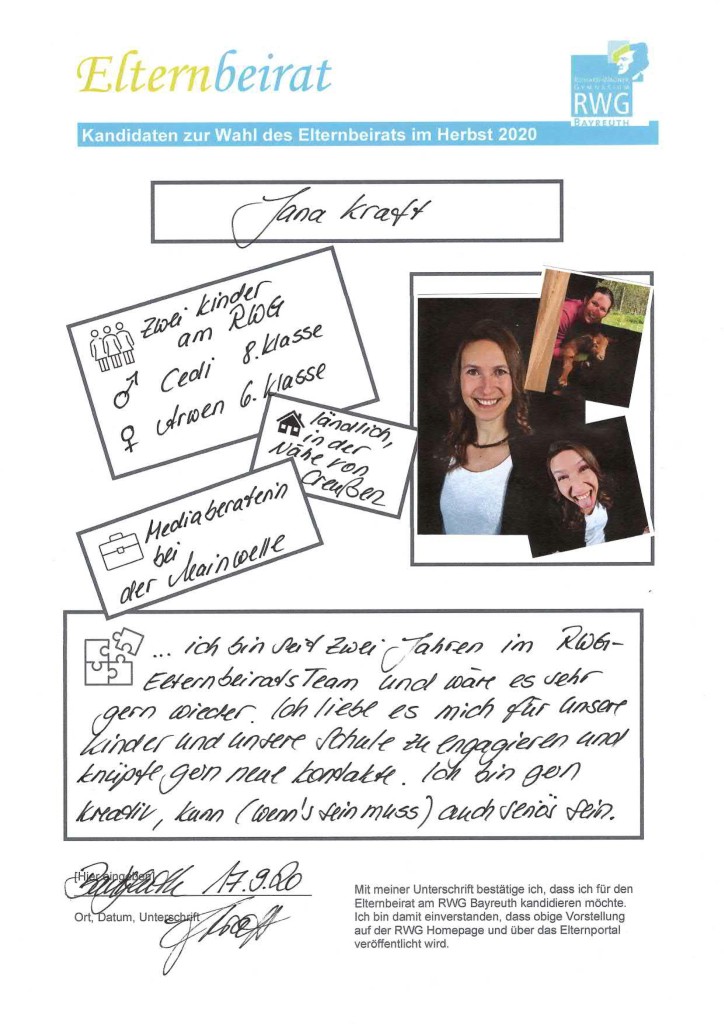 Elternbeirat
Richard-Wagner
Gymnasium
RWG
BAYREUTH
Kandidaten zur Wahl des Elternbeirats im Herbst 2020
Jana Kraeft
Zwei Kinder
am RWG
Cedi 8. Klasse
Arwen 6. Klasse
ländlich,
in der
Nähe von
Creußen
Mediaberaterin
bei
der Mainwelle
... ich bin seit zwei Jahren im RWG-
ElternbeiratsTeam und wäre es sehr
gern wieder. Ich liebe es mich für unsere
Kinder und unsere Schule zu engagieren und
knüpfe gern neue Kontakte. Ich bin gern
kreativ, kann (wenn's sein muss) auch seriös sein.
[Hier eingeben]
Bayreuth 17.9.20
Ort, Datum, Unterschrift
JKraeft
Mit meiner Unterschrift bestätige ich, dass ich für den
Elternbeirat am RWG Bayreuth kandidieren möchte.
Ich bin damit einverstanden, dass obige Vorstellung
auf der RWG Homepage und über das Elternportal
veröffentlicht wird.